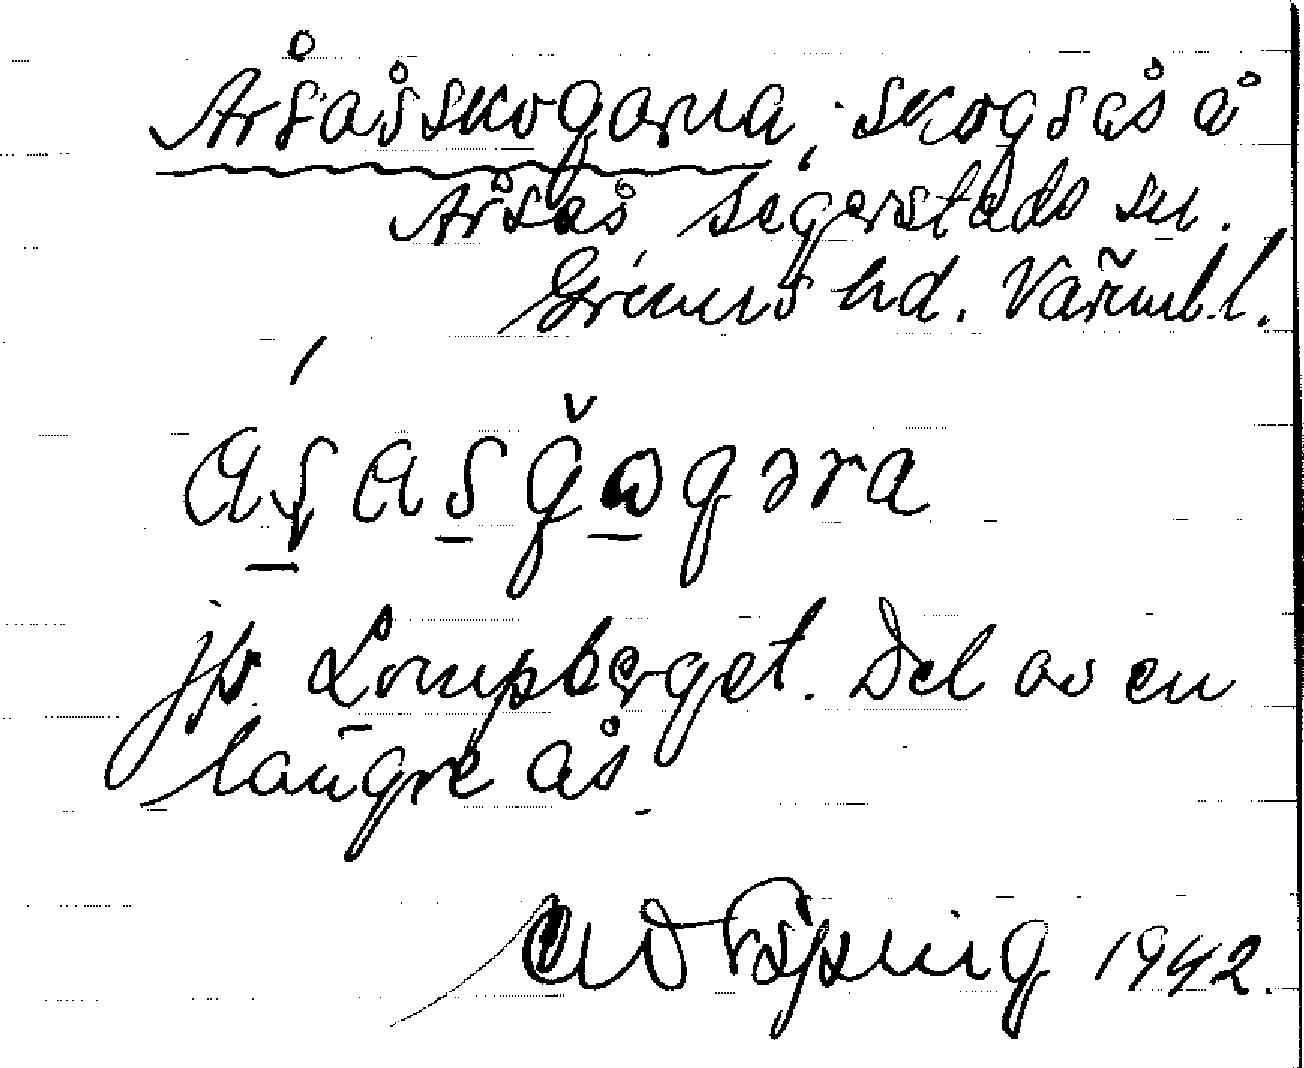 Årsåsskogarna, skogsås å
Årsås Segerstads sn.
Grums hd. Värml.
jfr Lompberget. Del av en
längre ås.
1942.